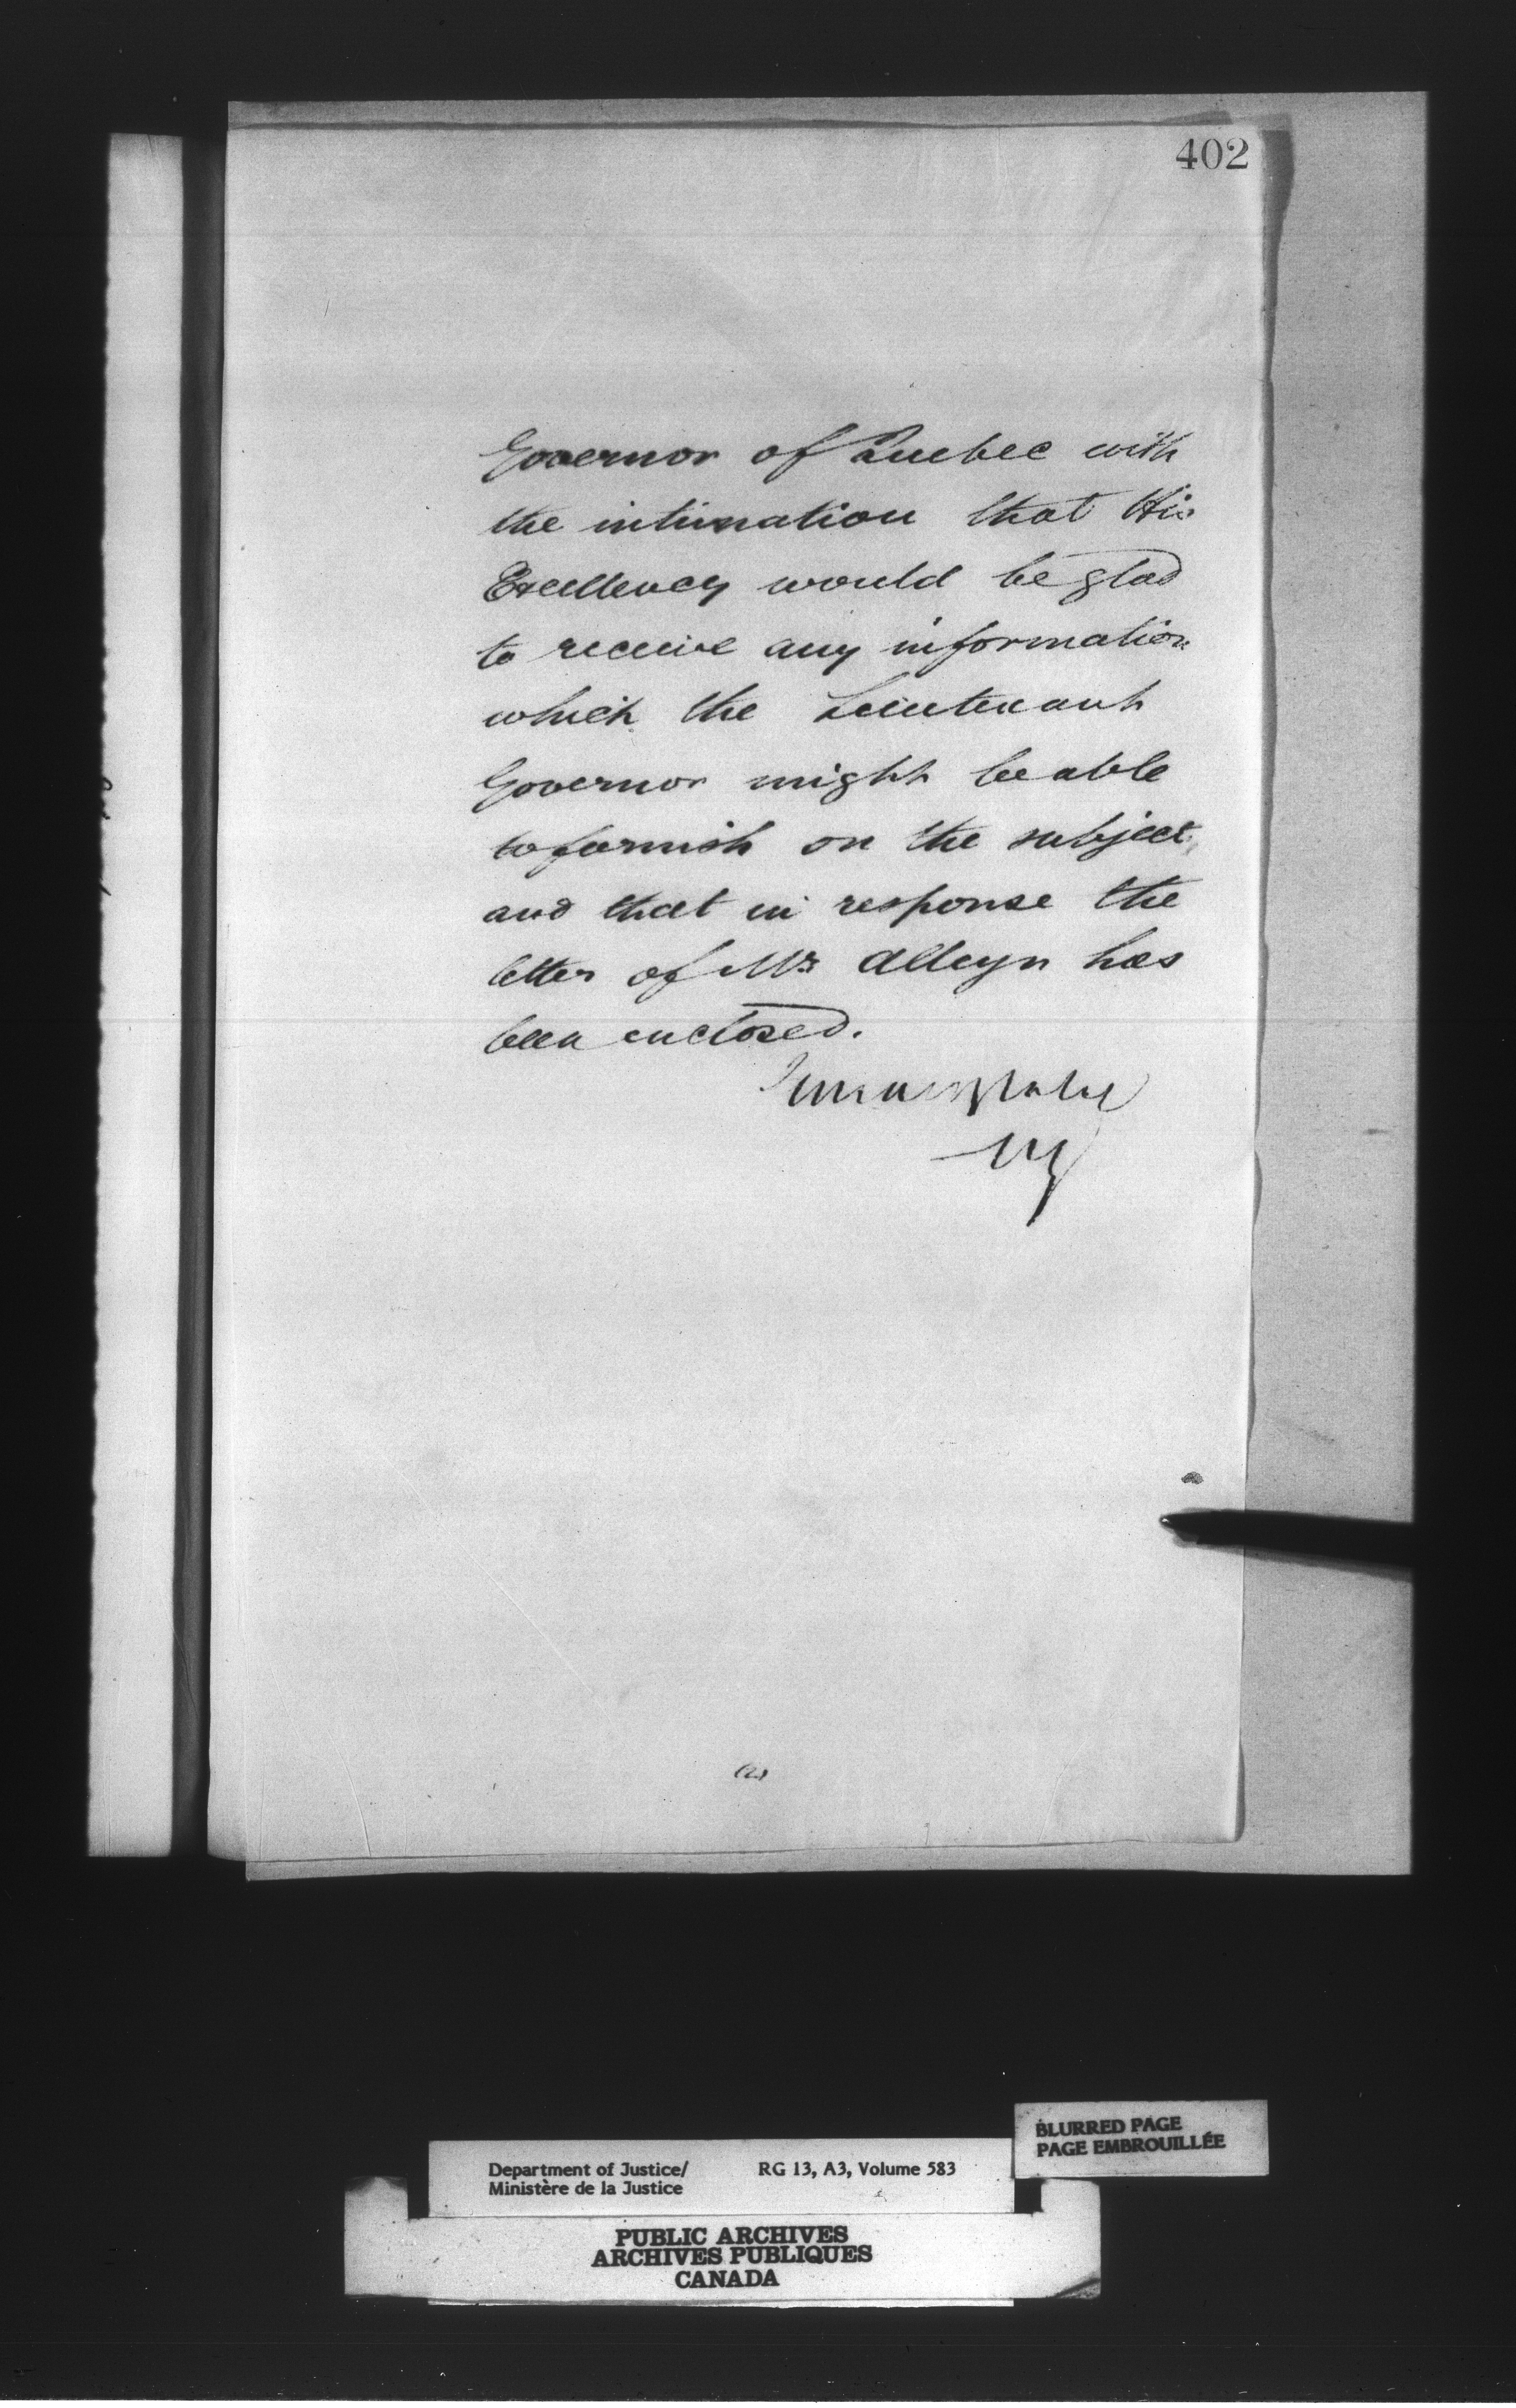 402
Governor of Quebec with
the intimation that His
Excellency would be glad
to receive any information
which the Lieutenant
Governor might be able
to furnish on the subject,
and that in response the
letter of Mr Alleyn has
been enclosed.
(2)
BLURRED PAGE
PAGE EMBROUILLÉE
Department of Justice/ RG 13, A3, Volume 583
Ministère de la Justice
PUBLIC ARCHIVES
ARCHIVES PUBLIQUES
CANADA